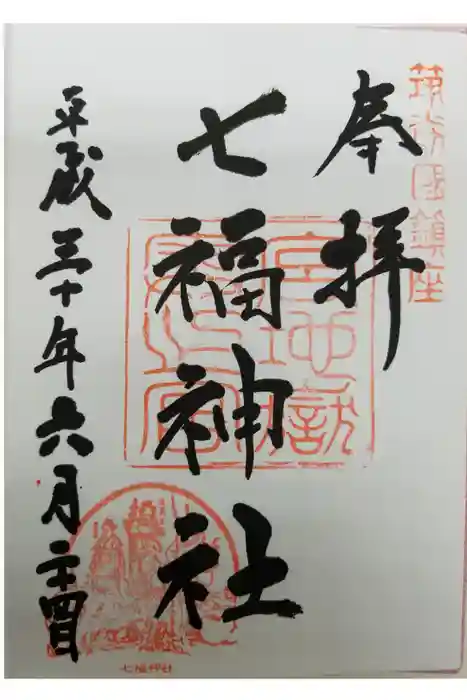 筑前國鎮座
奉拝
七福神社
平成三十年六月二十四日
七福神社